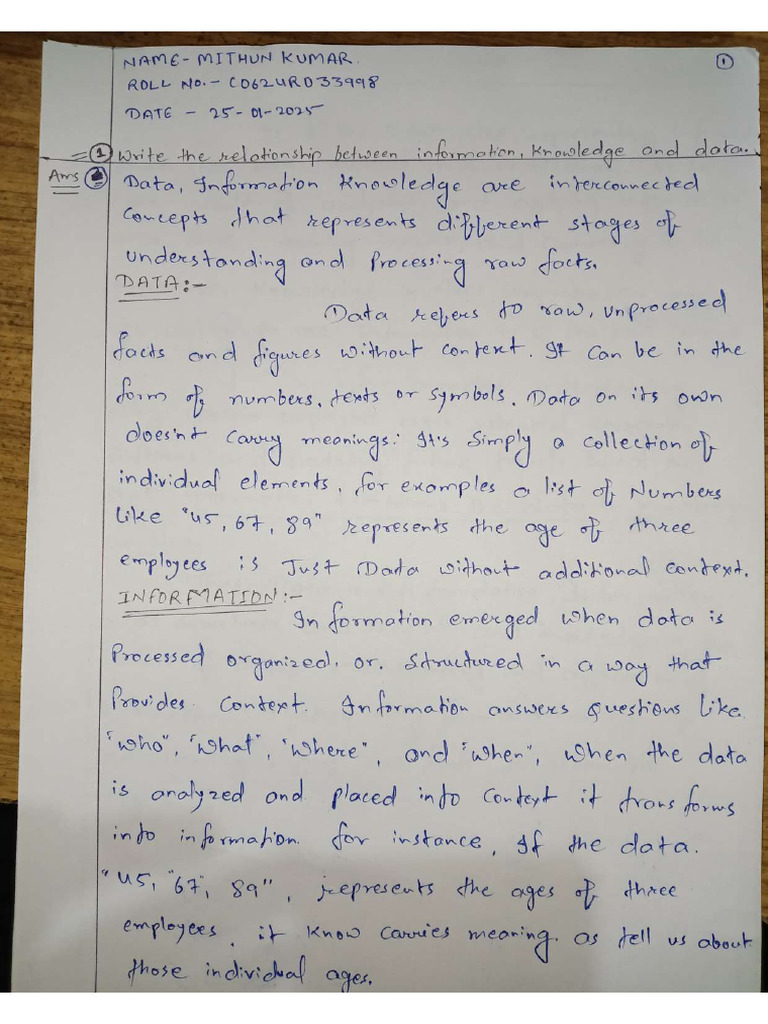 NAME- MITHUN KUMAR.
1
ROLL NO.- C062URD33998
DATE - 25-01-2025
=1 Write the relationship between information, knowledge and data.
Ans Data, Information Knowledge are interconnected
concepts that represents different stages of
understanding and Processing raw facts.
DATA:-
Data refers to raw, unprocessed
facts and figures without context. It can be in the
form of numbers, texts or symbols. Data on its own
does'nt carry meanings: It's Simply a collection of
individual elements, for examples a list of Numbers
Like "45, 67, 89" represents the age of three
employees is Just Data without additional context.
INFORMATION:-
Information emerged when data is
Processed organized, or. Structured in a way that
Provides Context. Information answers questions Like
"who", "what", "where", and "when", when the data
is analyzed and placed into context it transforms
into information for instance, If the data.
"45, "67", 89", represents the ages of three
employees, it know carries meaning. as tell us about
those individual ages.